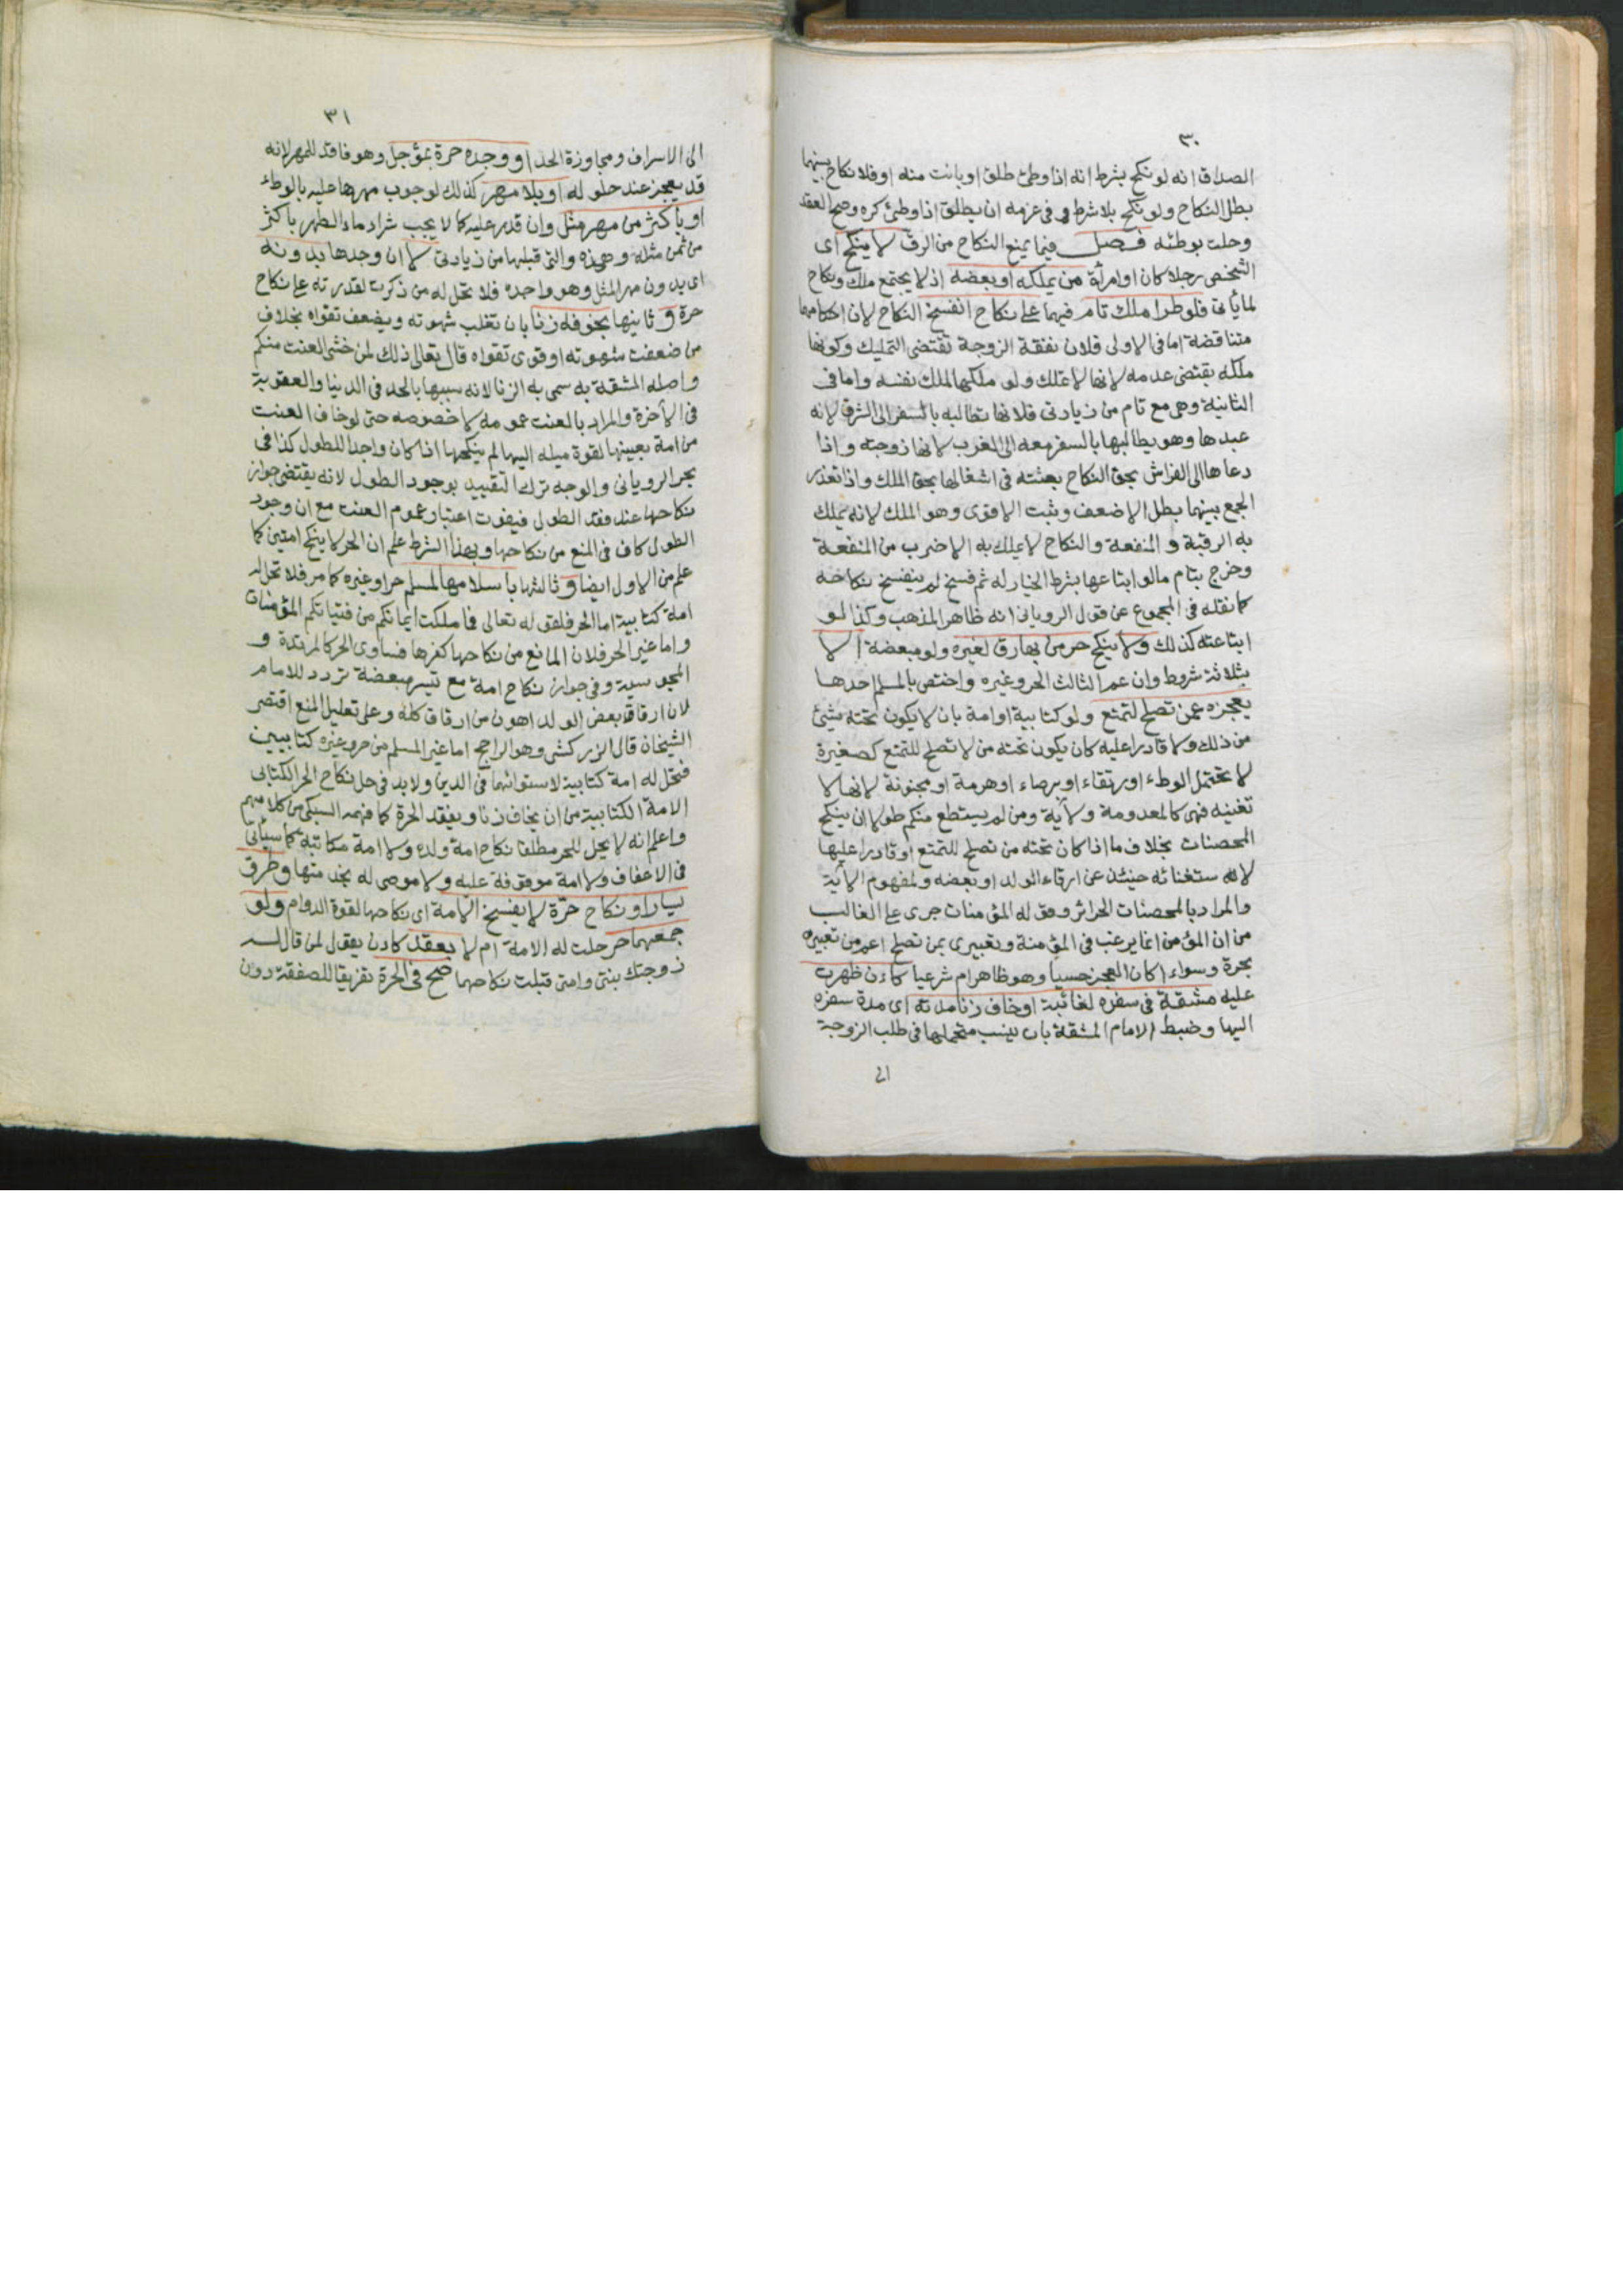 ٣٠
الصداق انه لو نكح بشرط انه اذا وطئ طلق او بانت منه او فلا نكاح بينهما
بطل النكاح ولو نكح بلا شرط وفي عزمه ان يطلق اذا وطئ كره وصح العقد
وحلت بوطئه فصل فيما يمنع النكاح من الرق لا ينكح اى
الشخص رجلا كان او امرأة من يملكه او بعضه اذ لا يجتمع ملك ونكاح
لما يأتى فلو طرا ملك تام فيهما على نكاح انفسخ النكاح لان احكامهما
متناقضة اما فى الاولى فلان نفقة الزوجة تقتضى التمليك وكونها
ملكه يقتضى عدمه لانها لا تملك ولو ملكها الملك نفسه واما فى
الثانية وهى مع تام من زيادتى فلانها تطالبه بالسفر الى الشرق لانه
عبدها وهو يطالبها بالسفر معه الى الغرب لانها زوجته واذا
دعاها الى الفراش بحق النكاح بعثته فى اشغالها بحق الملك واذا تعذر
الجمع بينهما بطل الاضعف وثبت الاقوى وهو الملك لانه يملك
به الرقبة والمنفعة والنكاح لا يملك به الا ضرب من المنفعة
وخرج بتام ما لو ابتاعها بشرط الخيار له ثم فسخ لم ينفسخ نكاحه
كما نقله فى المجموع عن قول الرويانى انه ظاهر المذهب وكذا لو
ابتاعته كذلك ولا ينكح حر من بها رق لغيره ولو مبعضة الا
بثلاثة شروط وان عم الثالث الحر وغيره واختص بالمسلم احدها
بعجزه عمن تصلح لتمتع ولو كتابية او امة بان لا يكون تحته شئ
من ذلك ولا قادرا عليه كان يكون تحته من لا تصلح للتمتع كصغيرة
لا تحتمل الوطء او رتقاء او برصاء او هرمة او مجنونة لانها لا
تغنيه فهى كالمعدومة ولآية ومن لم يستطع منكم طولا ان ينكح
المحصنات بخلاف ما اذا كان تحته من تصلح للتمتع او قادرا عليها
لاستغنائه حينئذ عن ارقاء الولد او بعضه ولمفهوم الآية
والمراد بالمحصنات الحرائر وقوله المؤمنات جرى على الغالب
من ان المؤمن انما يرغب فى المؤمنة وتعبيرى بمن تصلح اعم من تعبيره
بحرة وسواء اكان العجز حسيا وهو ظاهر ام شرعيا كان ظهرت
عليه مشقة فى سفره لغائبة او خاف زنا مدته اى مدة سفره
اليها وضبط الامام المشقة بان ينسب متحملها فى طلب الزوجة
الى
٣١
الى الاسراف ومجاوزة الحد او وجده حرة بمؤجل وهو فاقد للمهر لانه
قد يعجز عند حلوله او بلا مهر كذلك لوجوب مهرها عليه بالوطء
او باكثر من مهر مثل وان قدر عليه كما لا يجب شراء ماء الطهر باكثر
من ثمن مثله وهذه والتى قبلها من زيادتى لا ان وجدها بدونه
اى بدون مهر المثل وهو واجده فلا تحل له من ذكرت لقدرته على نكاح
حرة و ثانيها بخوفه زنا بان تغلب شهوته ويضعف تقواه بخلاف
من ضعفت شهوته او قوى تقواه قال تعالى ذلك لمن خشى العنت منكم
واصله المشقة به سمى به الزنا لانه سببها بالحد فى الدنيا والعقوبة
فى الاخرة والمراد بالعنت عمومه لا خصوصه حتى لو خاف العنت
من امة بعينها لقوة ميله اليها لم ينكحها اذا كان واجدا للطول كذا فى
بحر الرويانى والوجه ترك التقييد بوجود الطول لانه يقتضى جواز
نكاحها عند فقد الطول فيفوت اعتبار عموم العنت مع ان وجود
الطول كاف فى المنع من نكاحها وبهذا الشرط علم ان الحر لا ينكح امتين كما
علم من الاول ايضا و ثالثها باسلامها لمسلم حر او غيره كما مر فلا تحل له
امة كتابية اما الحر فلقوله تعالى فما ملكت ايمانكم من فتياتكم المؤمنات
واما غير الحر فلان المانع من نكاحها كفرها فساوى الحر كالمرتدة و
المجوسية وفى جواز نكاح امة مع تيسر مبعضة تردد للامام
لان ارقاق بعض الولد اهون من ارقاق كله وعلى تعليل المنع اقتصر
الشيخان قال الزركشى وهو الراجح اما غير المسلم من حر وغيره كتابيين
فتحل له امة كتابية لاستوائهما فى الدين ولا بد فى حل نكاح الحر الكتابى
الامة الكتابية من ان يخاف زنا ويفقد الحرة كما فهمه السبكى من كلامهم
واعلم انه لا يحل للحر مطلقا نكاح امة ولده ولا امة مكاتبه كما سيأتى
فى الاعفاف ولا امة موقوفة عليه ولا موصى له بخدمتها وطرق
يسار او نكاح حرة لا يفسخ الامة اى نكاحها لقوة الدوام ولو
جمعهما حر حلت له الامة ام لا بعقد كان يقول لمن قال له
زوجتك بنتى وامتى قبلت نكاحهما صح فى الحرة تفريقا للصفقة دون